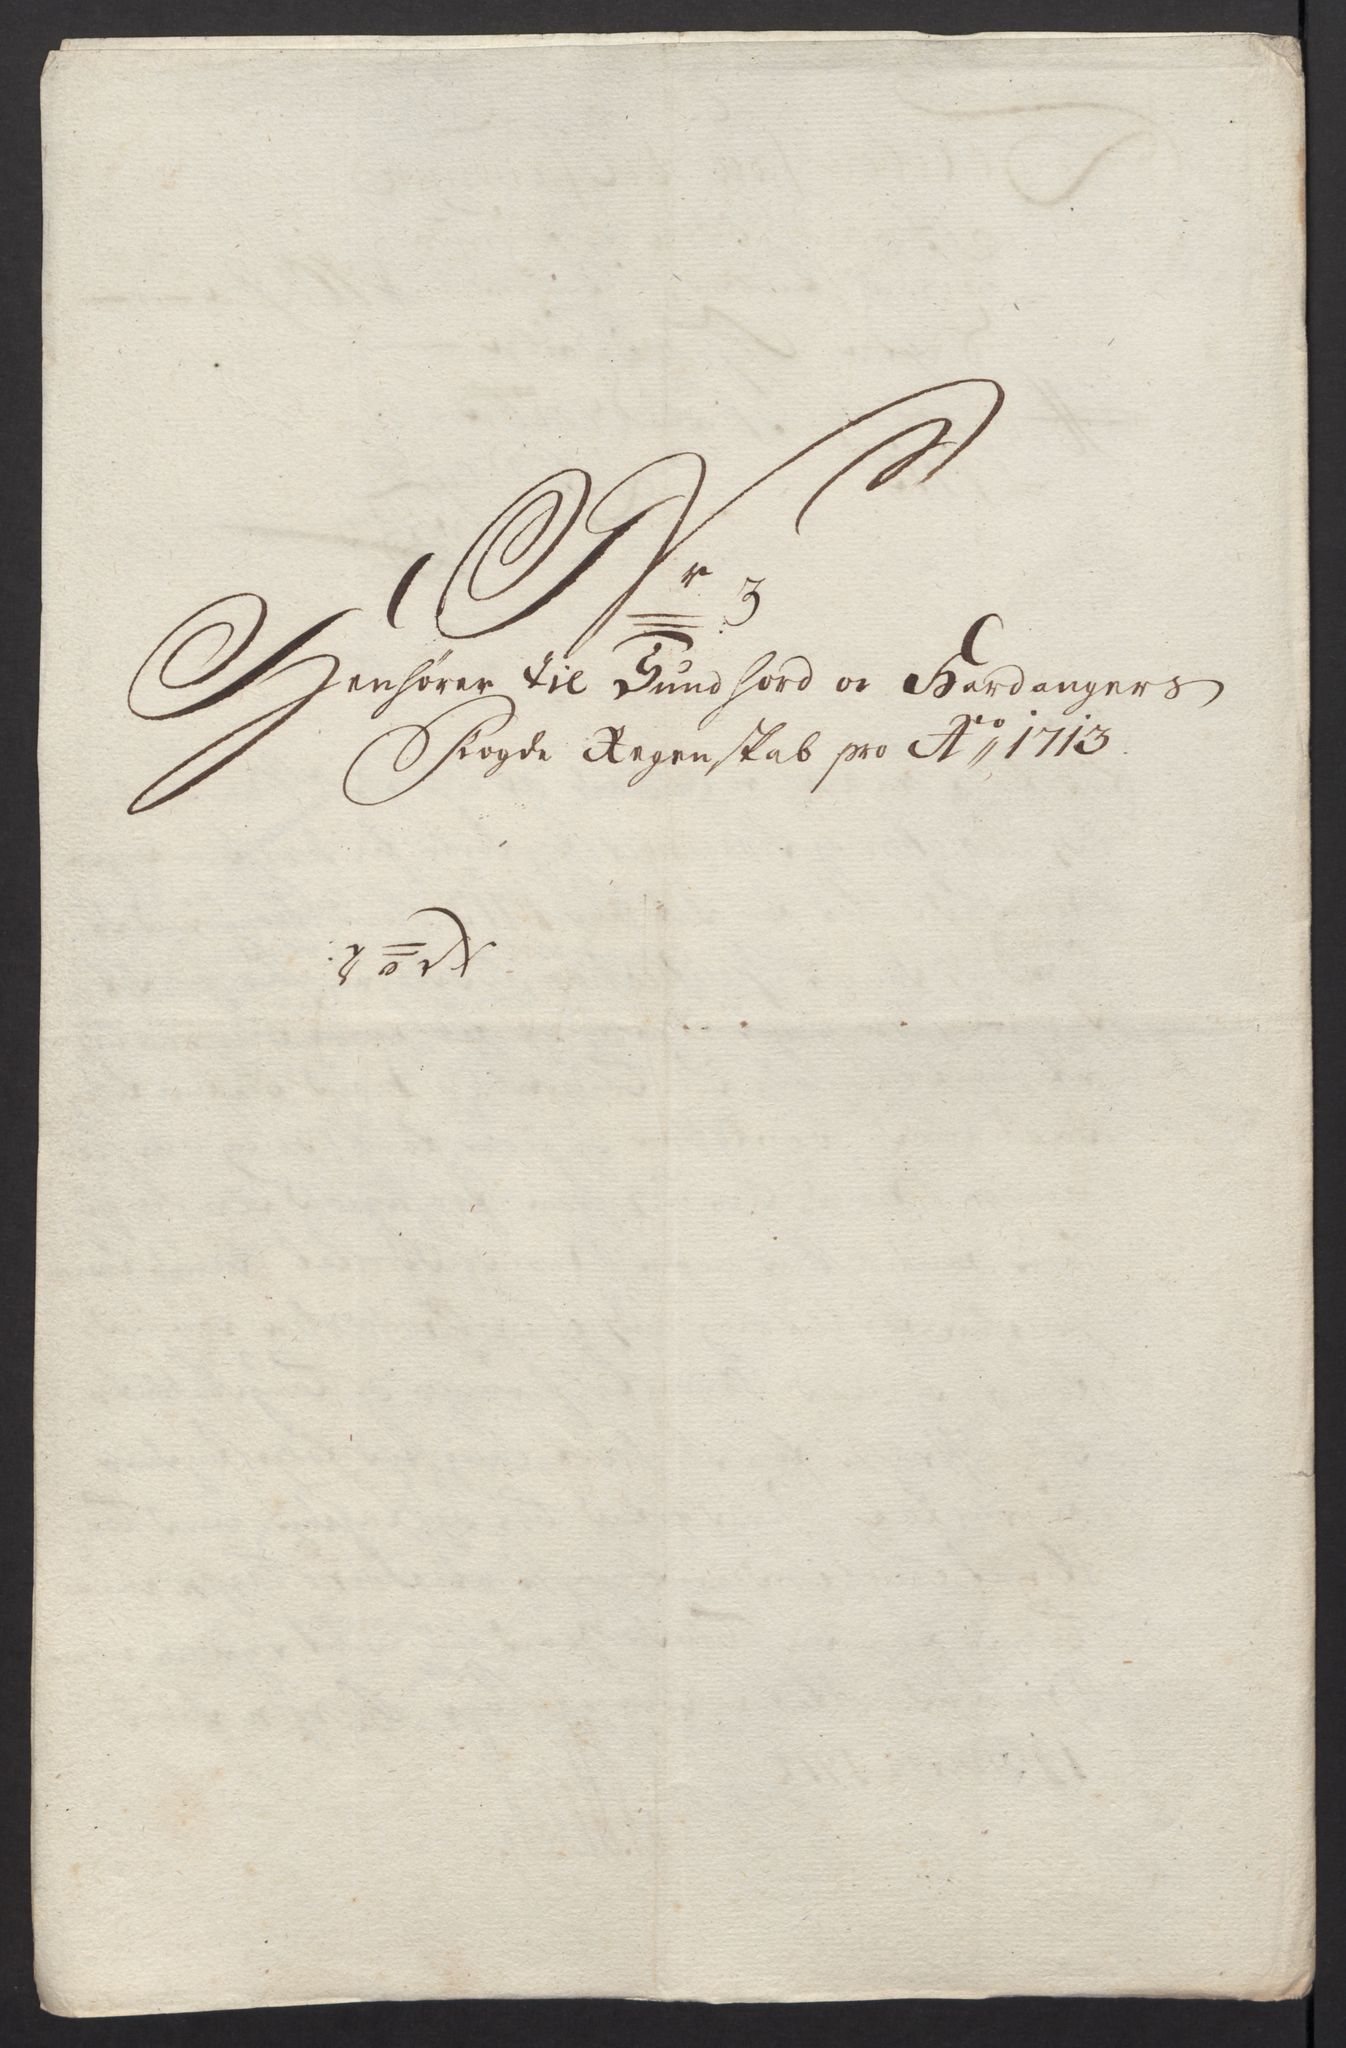 Nr 3
Henhører til Sundhord oc Hardangers
Fogde Regenskab pro Ao 1713